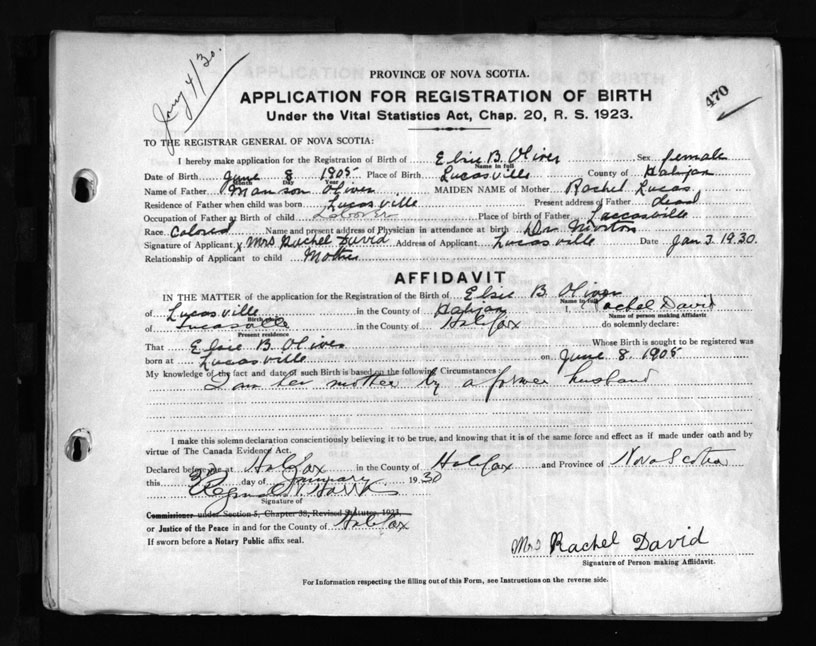 Jany 4/30.
470
PROVINCE OF NOVA SCOTIA.
APPLICATION FOR REGISTRATION OF BIRTH
Under the Vital Statistics Act, Chap. 20, R. S. 1923.
TO THE REGISTRAR GENERAL OF NOVA SCOTIA:
I hereby make application for the Registration of Birth of Elsie B. Oliver Sex female
Name in full
Date of Birth June 8 1905 Place of Birth Lucasville County of Halifax
Month Day Year
Name of Father Manson Oliver MAIDEN NAME of Mother Rachel Lucas
Residence of Father when child was born Lucasville Present address of Father dead
Occupation of Father at Birth of child Laborer Place of birth of Father Luccasville
Race Colored Name and present address of Physician in attendance at birth Dr Morton
Signature of Applicant x Mrs Rachel David Address of Applicant Lucasville Date Jan 3. 1930.
Relationship of Applicant to child Mother
AFFIDAVIT
IN THE MATTER of the application for the Registration of the Birth of Elsie B. Oliver
Name in full
of Lucasville in the County of Halifax I, Rachel David
Birth place
Name of person making Affidavit
of Lucasville in the County of Halifax do solemnly declare:
Present residence
That Elsie B. Oliver Whose Birth is sought to be registered was
born at Lucasville on June 8. 1905
My knowledge of the fact and date of such Birth is based on the following Circumstances:
I am her mother by a former husband
I make this solemn declaration conscientiously believing it to be true, and knowing that it is of the same force and effect as if made under oath and by
virtue of The Canada Evidence Act.
Declared before me at Halifax in the County of Halifax and Province of Nova Scotia
this 3rd day of January 1930
Signature of
Commissioner under Section 5, Chapter 38, Revised Statutes, 1923.
or Justice of the Peace in and for the County of Halifax
If sworn before a Notary Public affix seal.
Mrs Rachel David
Signature of Person making Affidavit.
For Information respecting the filling out of this Form, see Instructions on the reverse side.